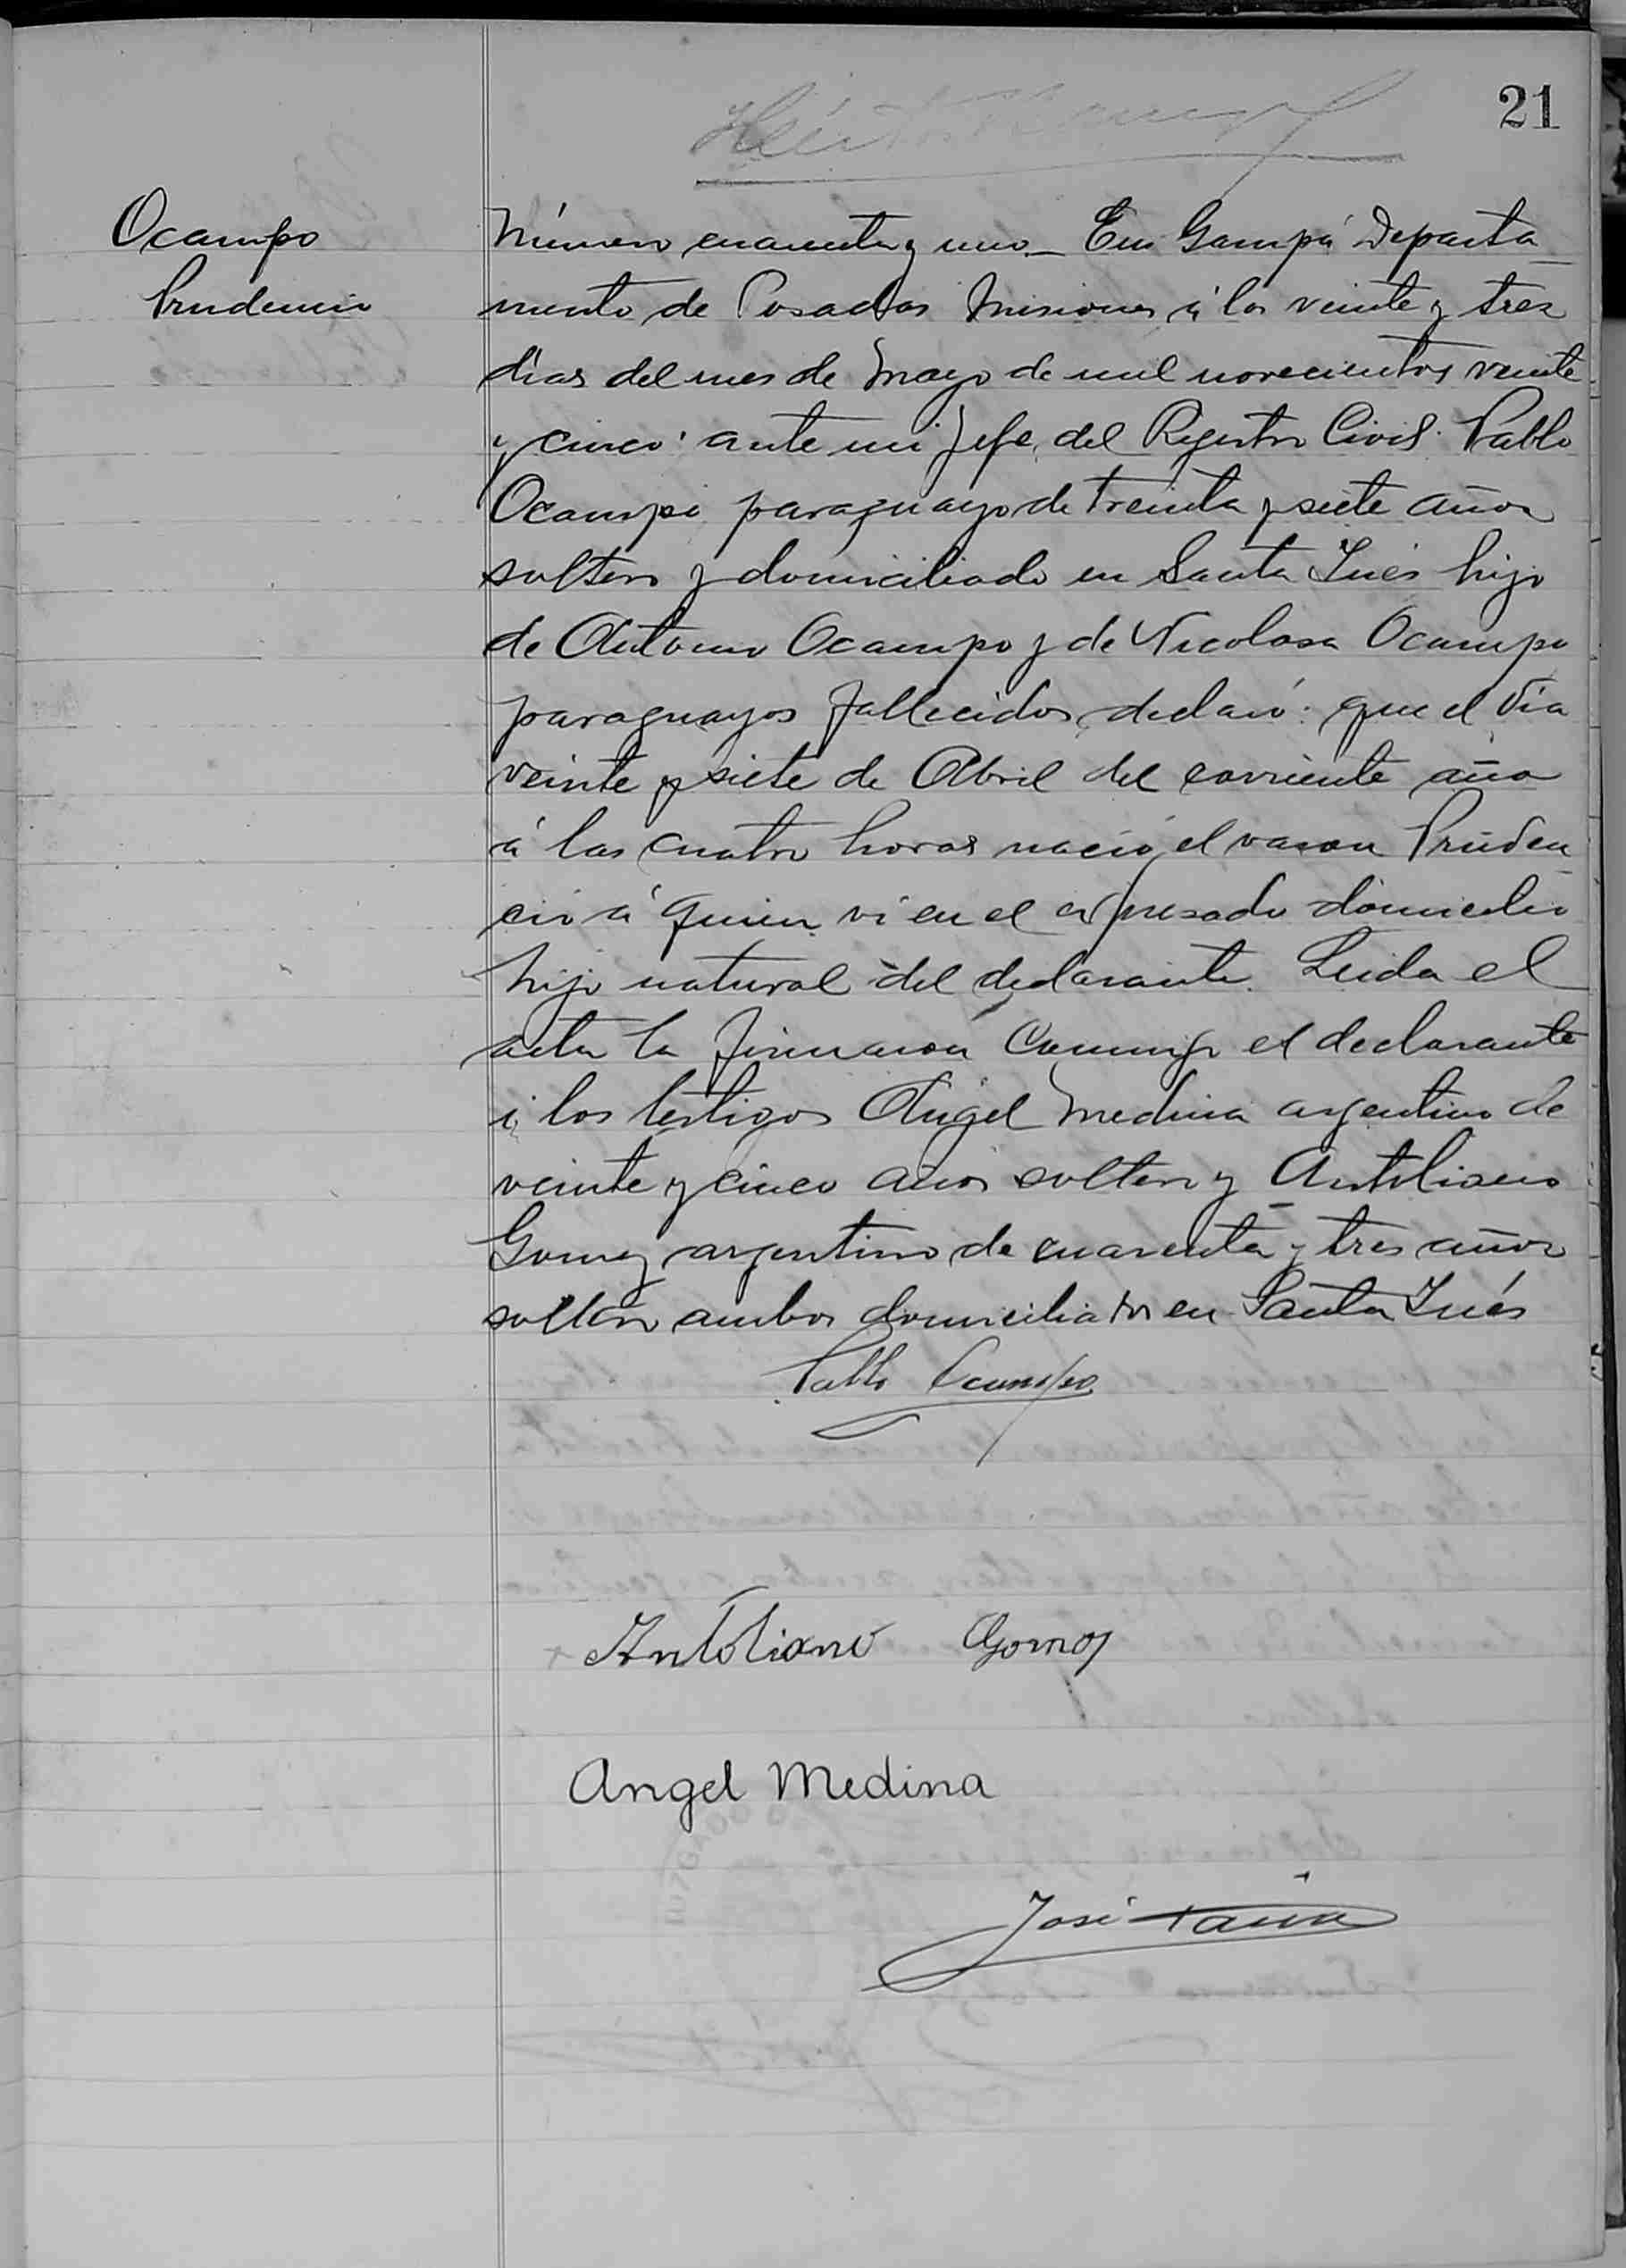 21
Ocampo
Prudencio
Número cuarenta y uno_ En Garupá Departa
mento de Posadas Misiones á los veinte y tres
dias del mes de Mayo de mil novecientos veinte
y cinco: ante mi Jefe del Registro Civil. Pablo
Ocampo paraguayo de treinta y siete años
soltero y domiciliado en Santa Inés hijo
de Antonio Ocampo y de Nicolasa Ocampo
paraguayos fallecidos, declaró: que el dia
veinte y siete de Abril del corriente año
á las cuatro horas nació el varon Pruden
cio á quien ví en el expresado domicilio
hijo natural del declarante. Leida el
acta la firmaron conmigo el declarante
i los testigos Angel Medina argentino de
veinte y cinco años soltero y Antoliano
Gomez argentino de cuarenta y tres años
soltero ambos domiciliados en Santa Inés
Pablo Ocampo
Antoliano Gomez
Angel Medina
José